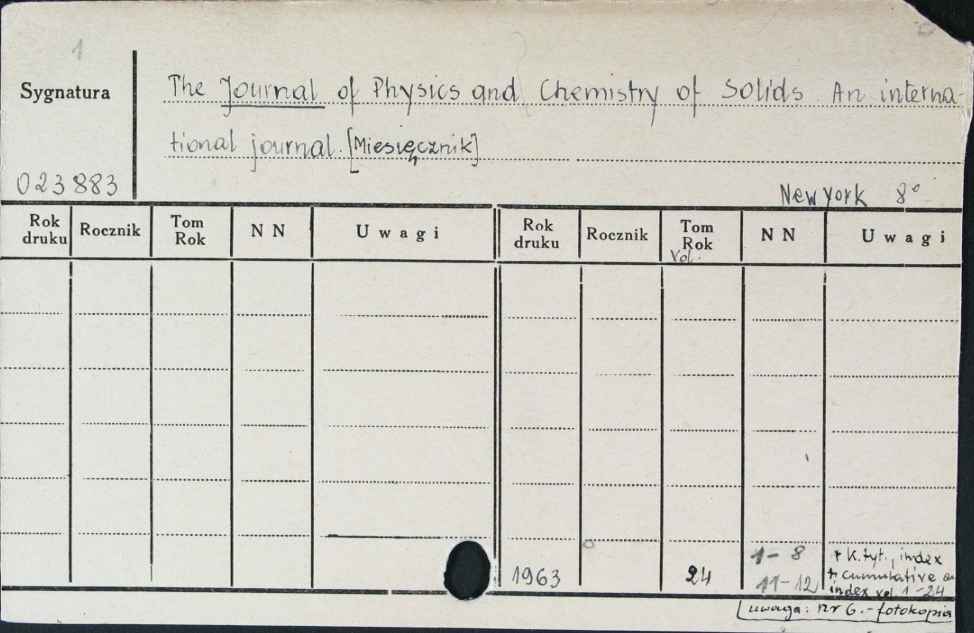 1
Sygnatura
The Journal of Physics and Chemistry of Solids. An interna-
tional journal. [Miesięcznik]
023883
New York 8°
Rok druku Rocznik Tom Rok NN Uwagi Rok druku Rocznik Tom Rok Vol. NN Uwagi
1-8 + k. tyt., index
1963 24 11-12 + cumulative
index vol 1-24
uwaga: nr 6. - fotokopia